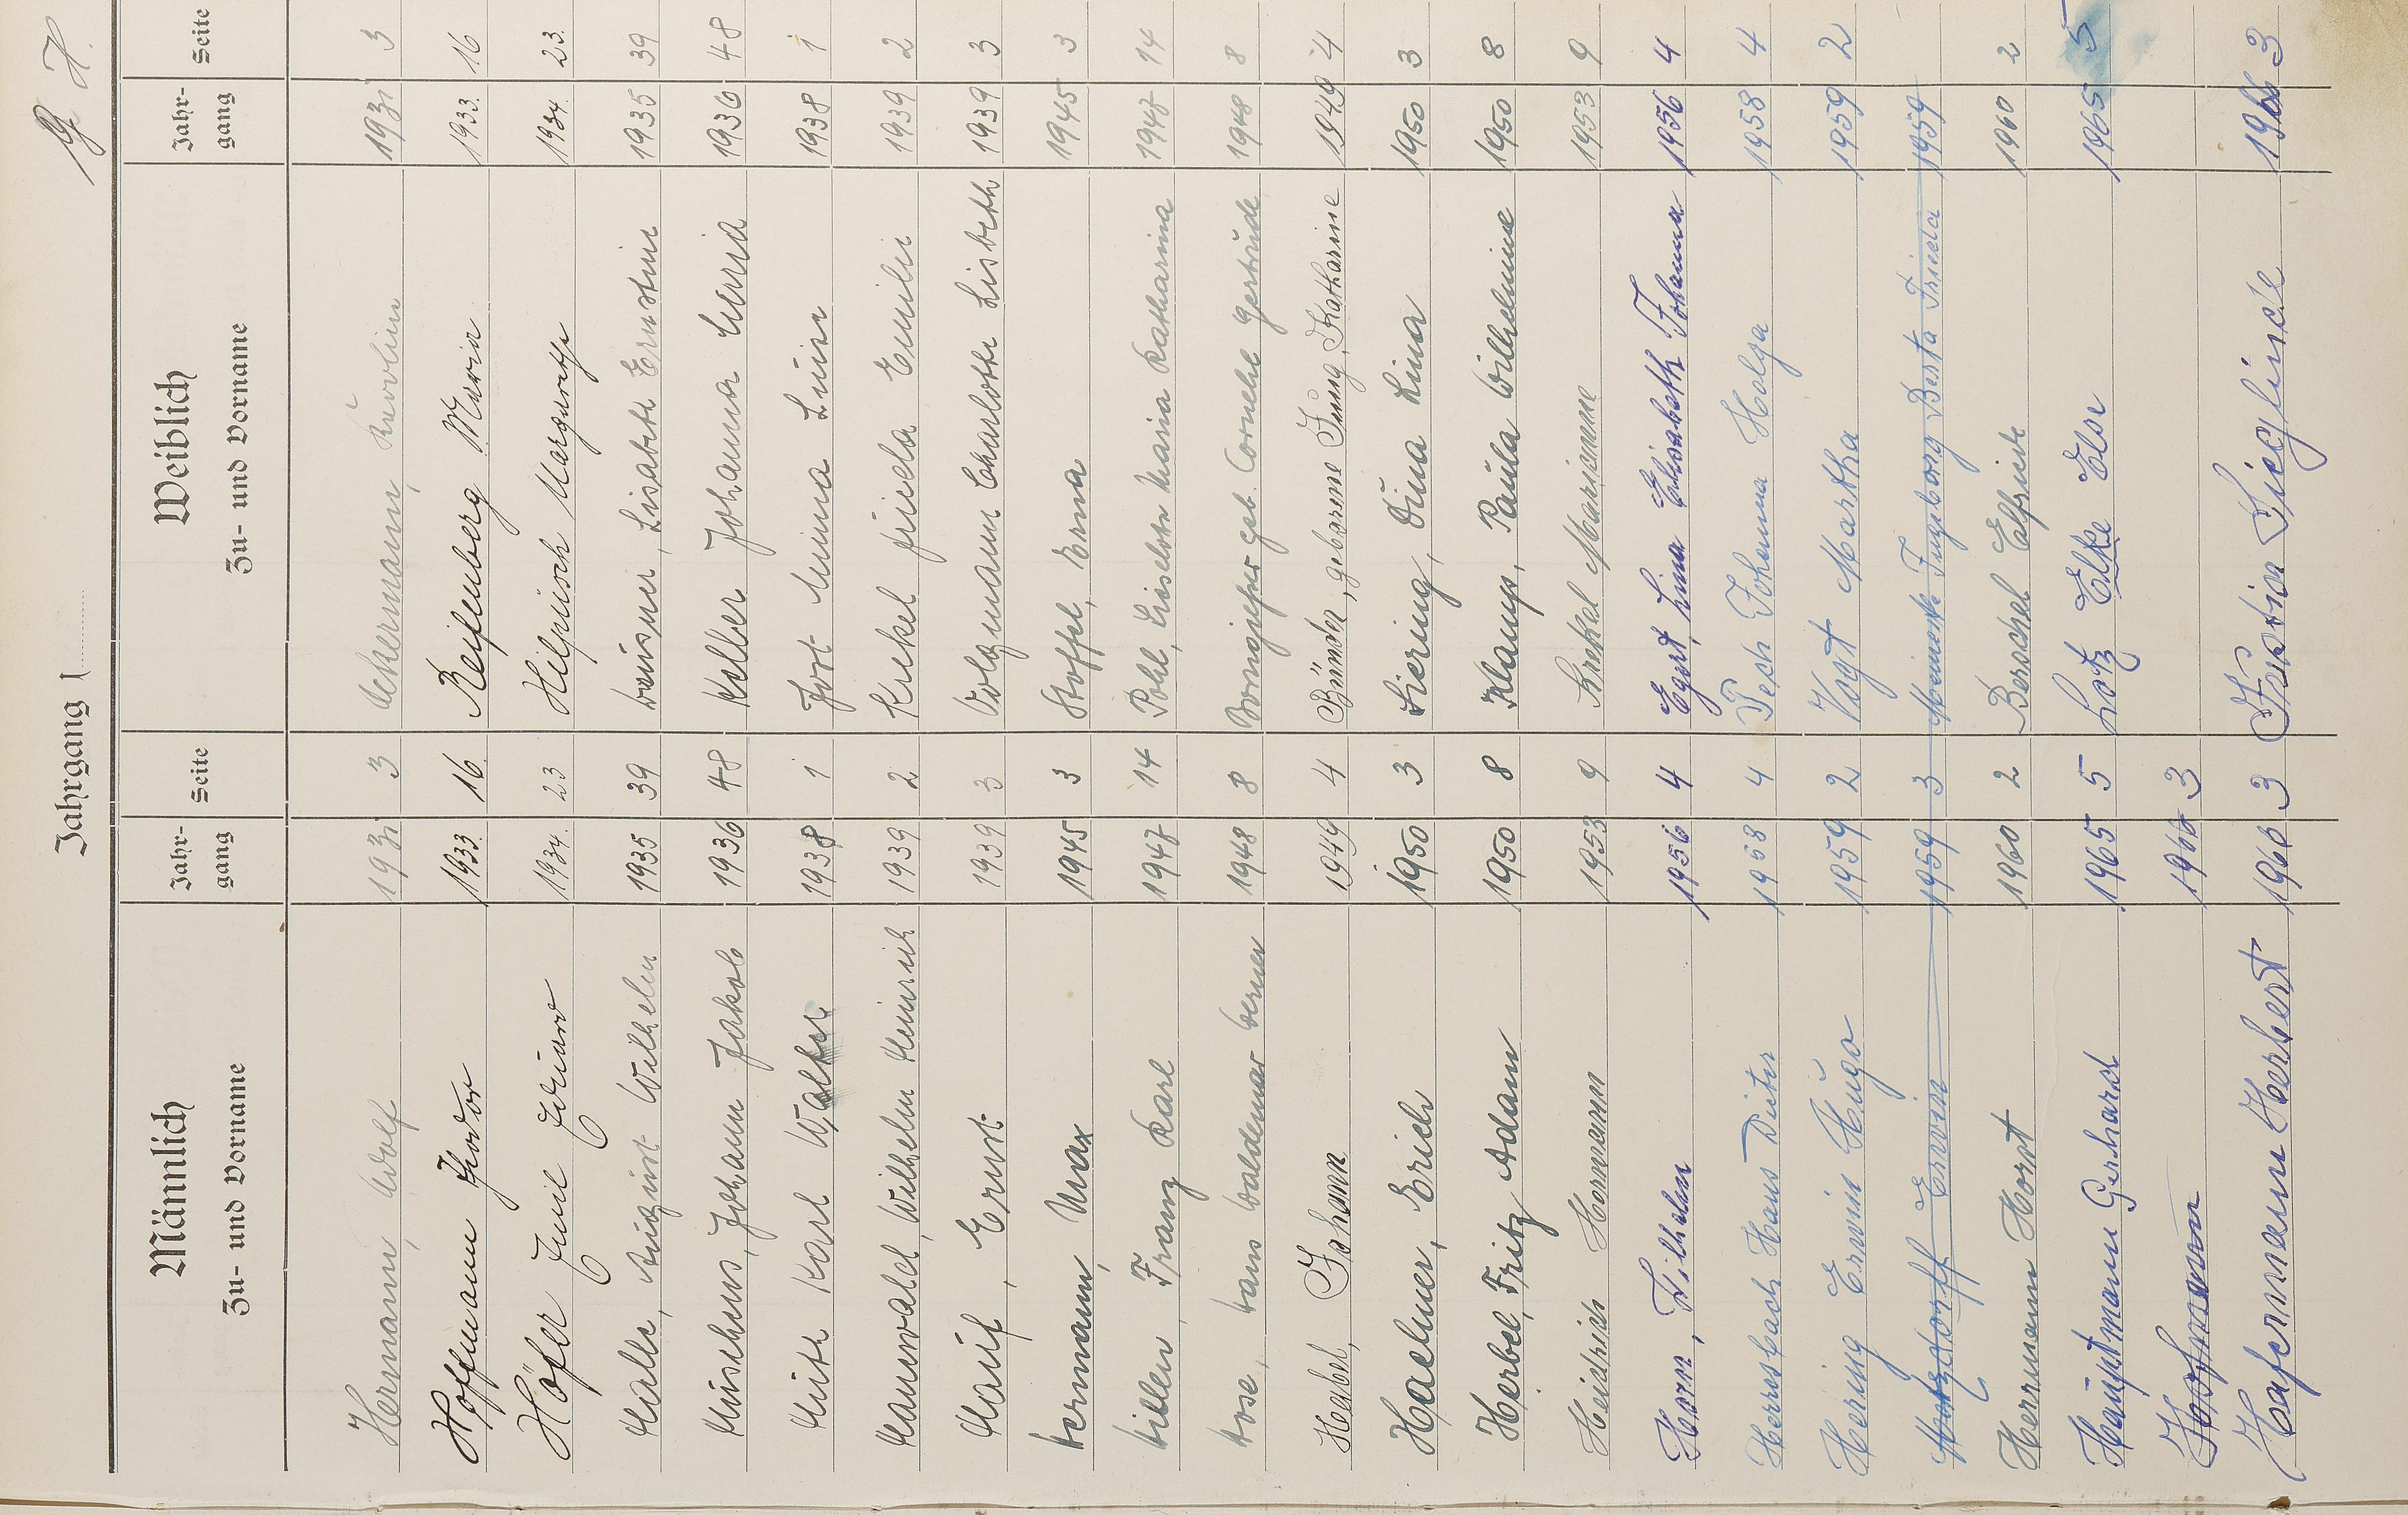 Jahrgang 1
H.
Männlich Jahr- Seite Weiblich Jahr- Seite
Zu- und Vorname gang Zu- und Vorname gang
Hermann, Adolf 1931 3 Ackermann, Karoline 1931 3
Hoffmann Theodor 1933. 16. Reifenberg Maria 1933. 16
Höfer Emil Eduard 1934. 23 Hilpüsch Margarethe 1934. 23.
Halle, August Wilhelm 1935 39 Lisabeth Ernstine 1935 39
Johann Jakob 1936 48 Keller Johanna Maria 1936 48
Karl Walter 1938 1 Jost Minna Luise 1938 1
Hauswald, Wilhelm Heinrich 1939 2 Kunkel Frieda Emilie 1939 2
Hauf, Ernst 1939 3 Volzmann Charlotte Lisbeth 1939 3
Hermann, Max 1945 3 Stoffel, Erna 1945 3
Hillen, Franz Karl 1947 14 Pohl, Liselotte Maria Katharina 1947 14
Hose, Hans Waldemar Werner 1948 8 geb. Cornehl Gertrude 1948 8
Heibel, Johann 1949 4 geborene Jung, Katharine 1949 4
Haelmer, Erich 1950 3 Siering, Dina Lina 1950 3
Herbel, Fritz Adam 1950 8 Klamp, Paula Wilhelmine 1950 8
Heidrich Hermann 1953 9 Krekel Marianne 1953 9
Horn, Wilhelm 1956 4 Egert, Lina Elisabeth Johanna 1956 4
Herresbach Hans Dieter 1958 4 Pesch Johanna Helga 1958 4
Hering Erwin Hugo 1959 2 Vogt Martha 1959 2
Hertzdorff Erwin 1959 3 Meinert Ingeborg Berta Frieda 1959
Hermann Horst 1960 2 Berschel Elfriede 1960 2
Hauptmann Gerhard 1965 5 Lotz Elke Else 1965 5
Hofmann 1966 3
Hafermann Herbert 1966 3 Justin Sieglinde 1966 3